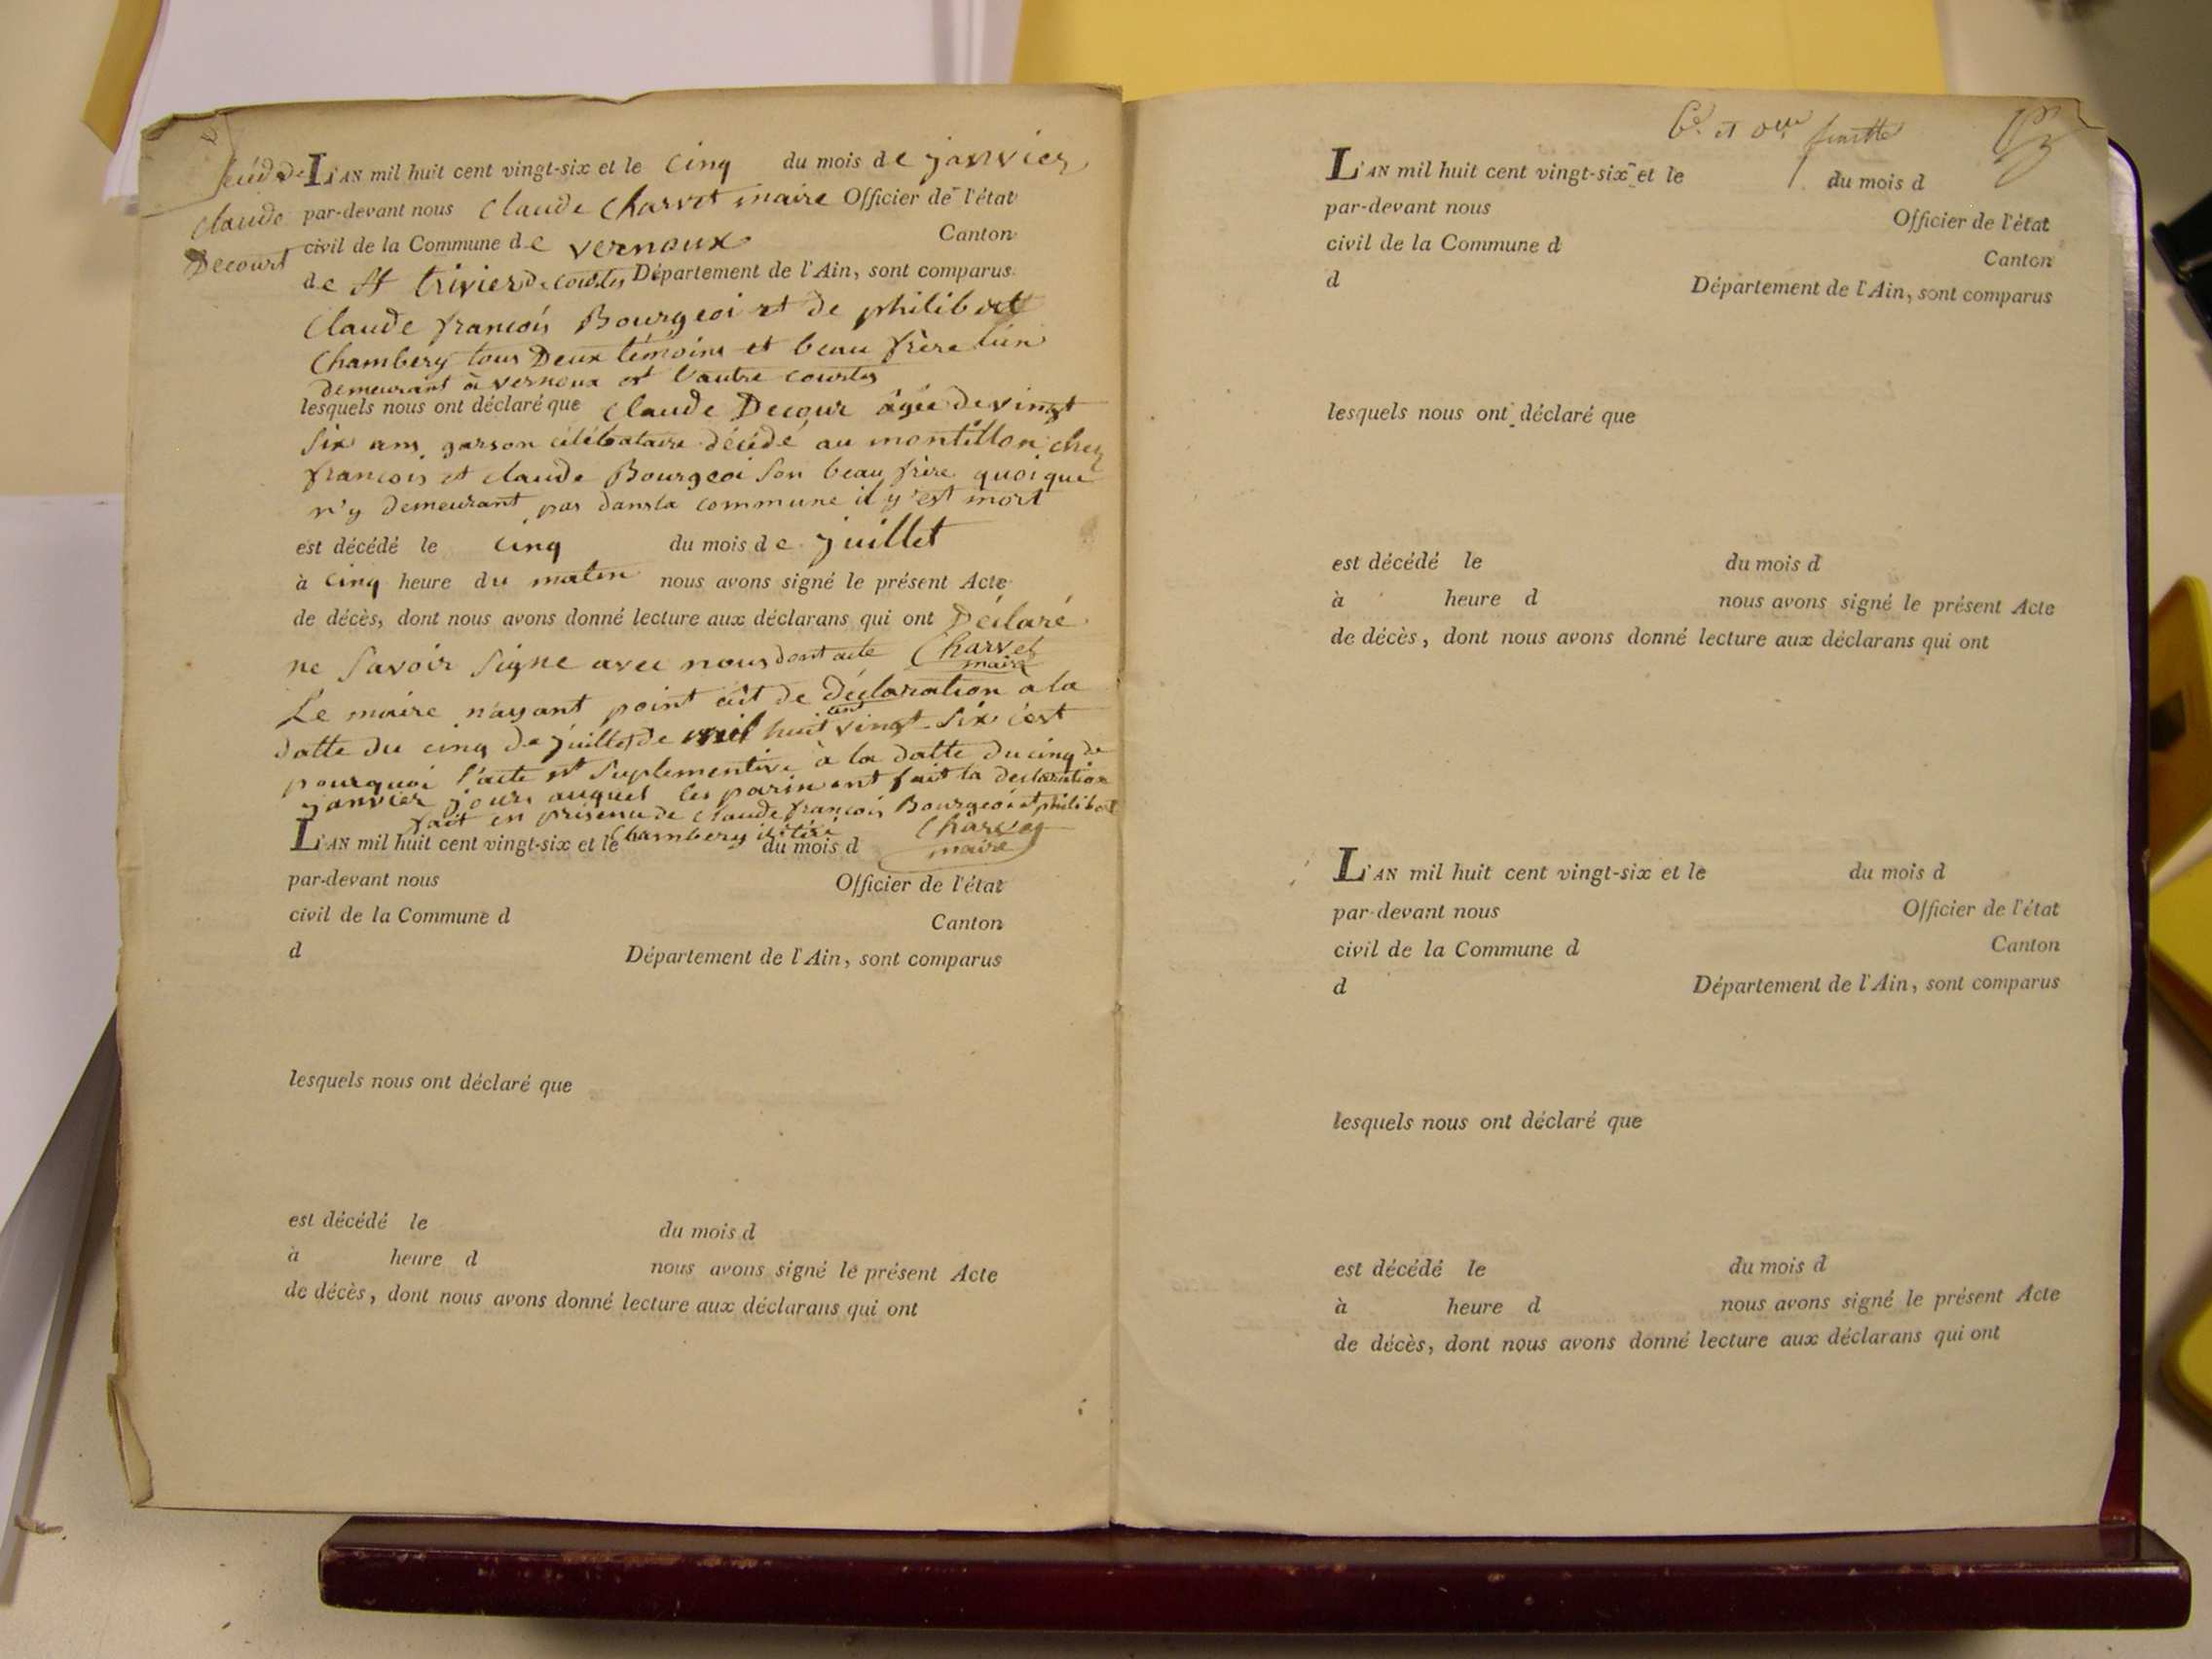 L'AN mil huit cent vingt-six et le cinq du mois de janvier
claude
Decourt
par-devant nous Claude Charvet maire Officier de l'état
civil de la Commune de vernoux Canton
de St trivier de courtes Département de l'Ain, sont comparus
Claude francois Bourgeoi et de philibert
Chambery tous Deux témoins et beau frère lun
demeurant à vernoux et l'autre courtes
lesquels nous ont déclaré que Claude Decour âgée de vingt
six ans garson célébataire décédé au montillon chez
francois et claude Bourgeoi son beau frère quoique
n'y demeurant pas dans la commune il y est mort
est décédé le cinq du mois de juillet
à cinq heure du matin nous avons signé le présent Acte
de décès, dont nous avons donné lecture aux déclarans qui ont Déclaré
ne savoir signe avec nous dont acte Charvet
maire
Le maire n'ayant point de déclaration a la
datte du cinq de juillet de mil huit cent vingt-six c'est
pourquoi l'acte est suplementive à la datte du cinq de
janvier jours auquel les parin ont fait la declaration
fait en présence de claude francois Bourgeoi et philibert
Chambery Charvet
maire
L'AN mil huit cent vingt-six et le du mois d
par-devant nous Officier de l'état
civil de la Commune d Canton
d Département de l'Ain, sont comparus
lesquels nous ont déclaré que
est décédé le du mois d
à heure d nous avons signé le présent Acte
de décès, dont nous avons donné lecture aux déclarans qui ont
L'AN mil huit cent vingt-six et le du mois d
par-devant nous Officier de l'état
civil de la Commune d Canton
d Département de l'Ain, sont comparus
lesquels nous ont déclaré que
est décédé le du mois d
à heure d nous avons signé le présent Acte
de décès, dont nous avons donné lecture aux déclarans qui ont
L'AN mil huit cent vingt-six et le du mois d
par-devant nous Officier de l'état
civil de la Commune d Canton
d Département de l'Ain, sont comparus
lesquels nous ont déclaré que
est décédé le du mois d
à heure d nous avons signé le présent Acte
de décès, dont nous avons donné lecture aux déclarans qui ont